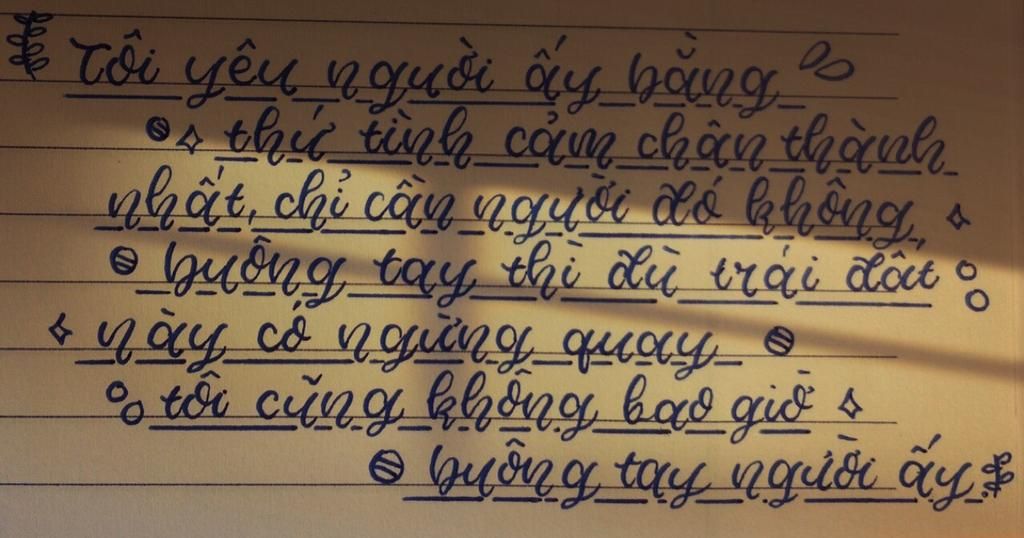 Tôi yêu người ấy bằng
thứ tình cảm chân thành
nhất, chỉ cần người đó không
buông tay thì dù trái đất
này có ngừng quay
tôi cũng không bao giờ
buông tay người ấy